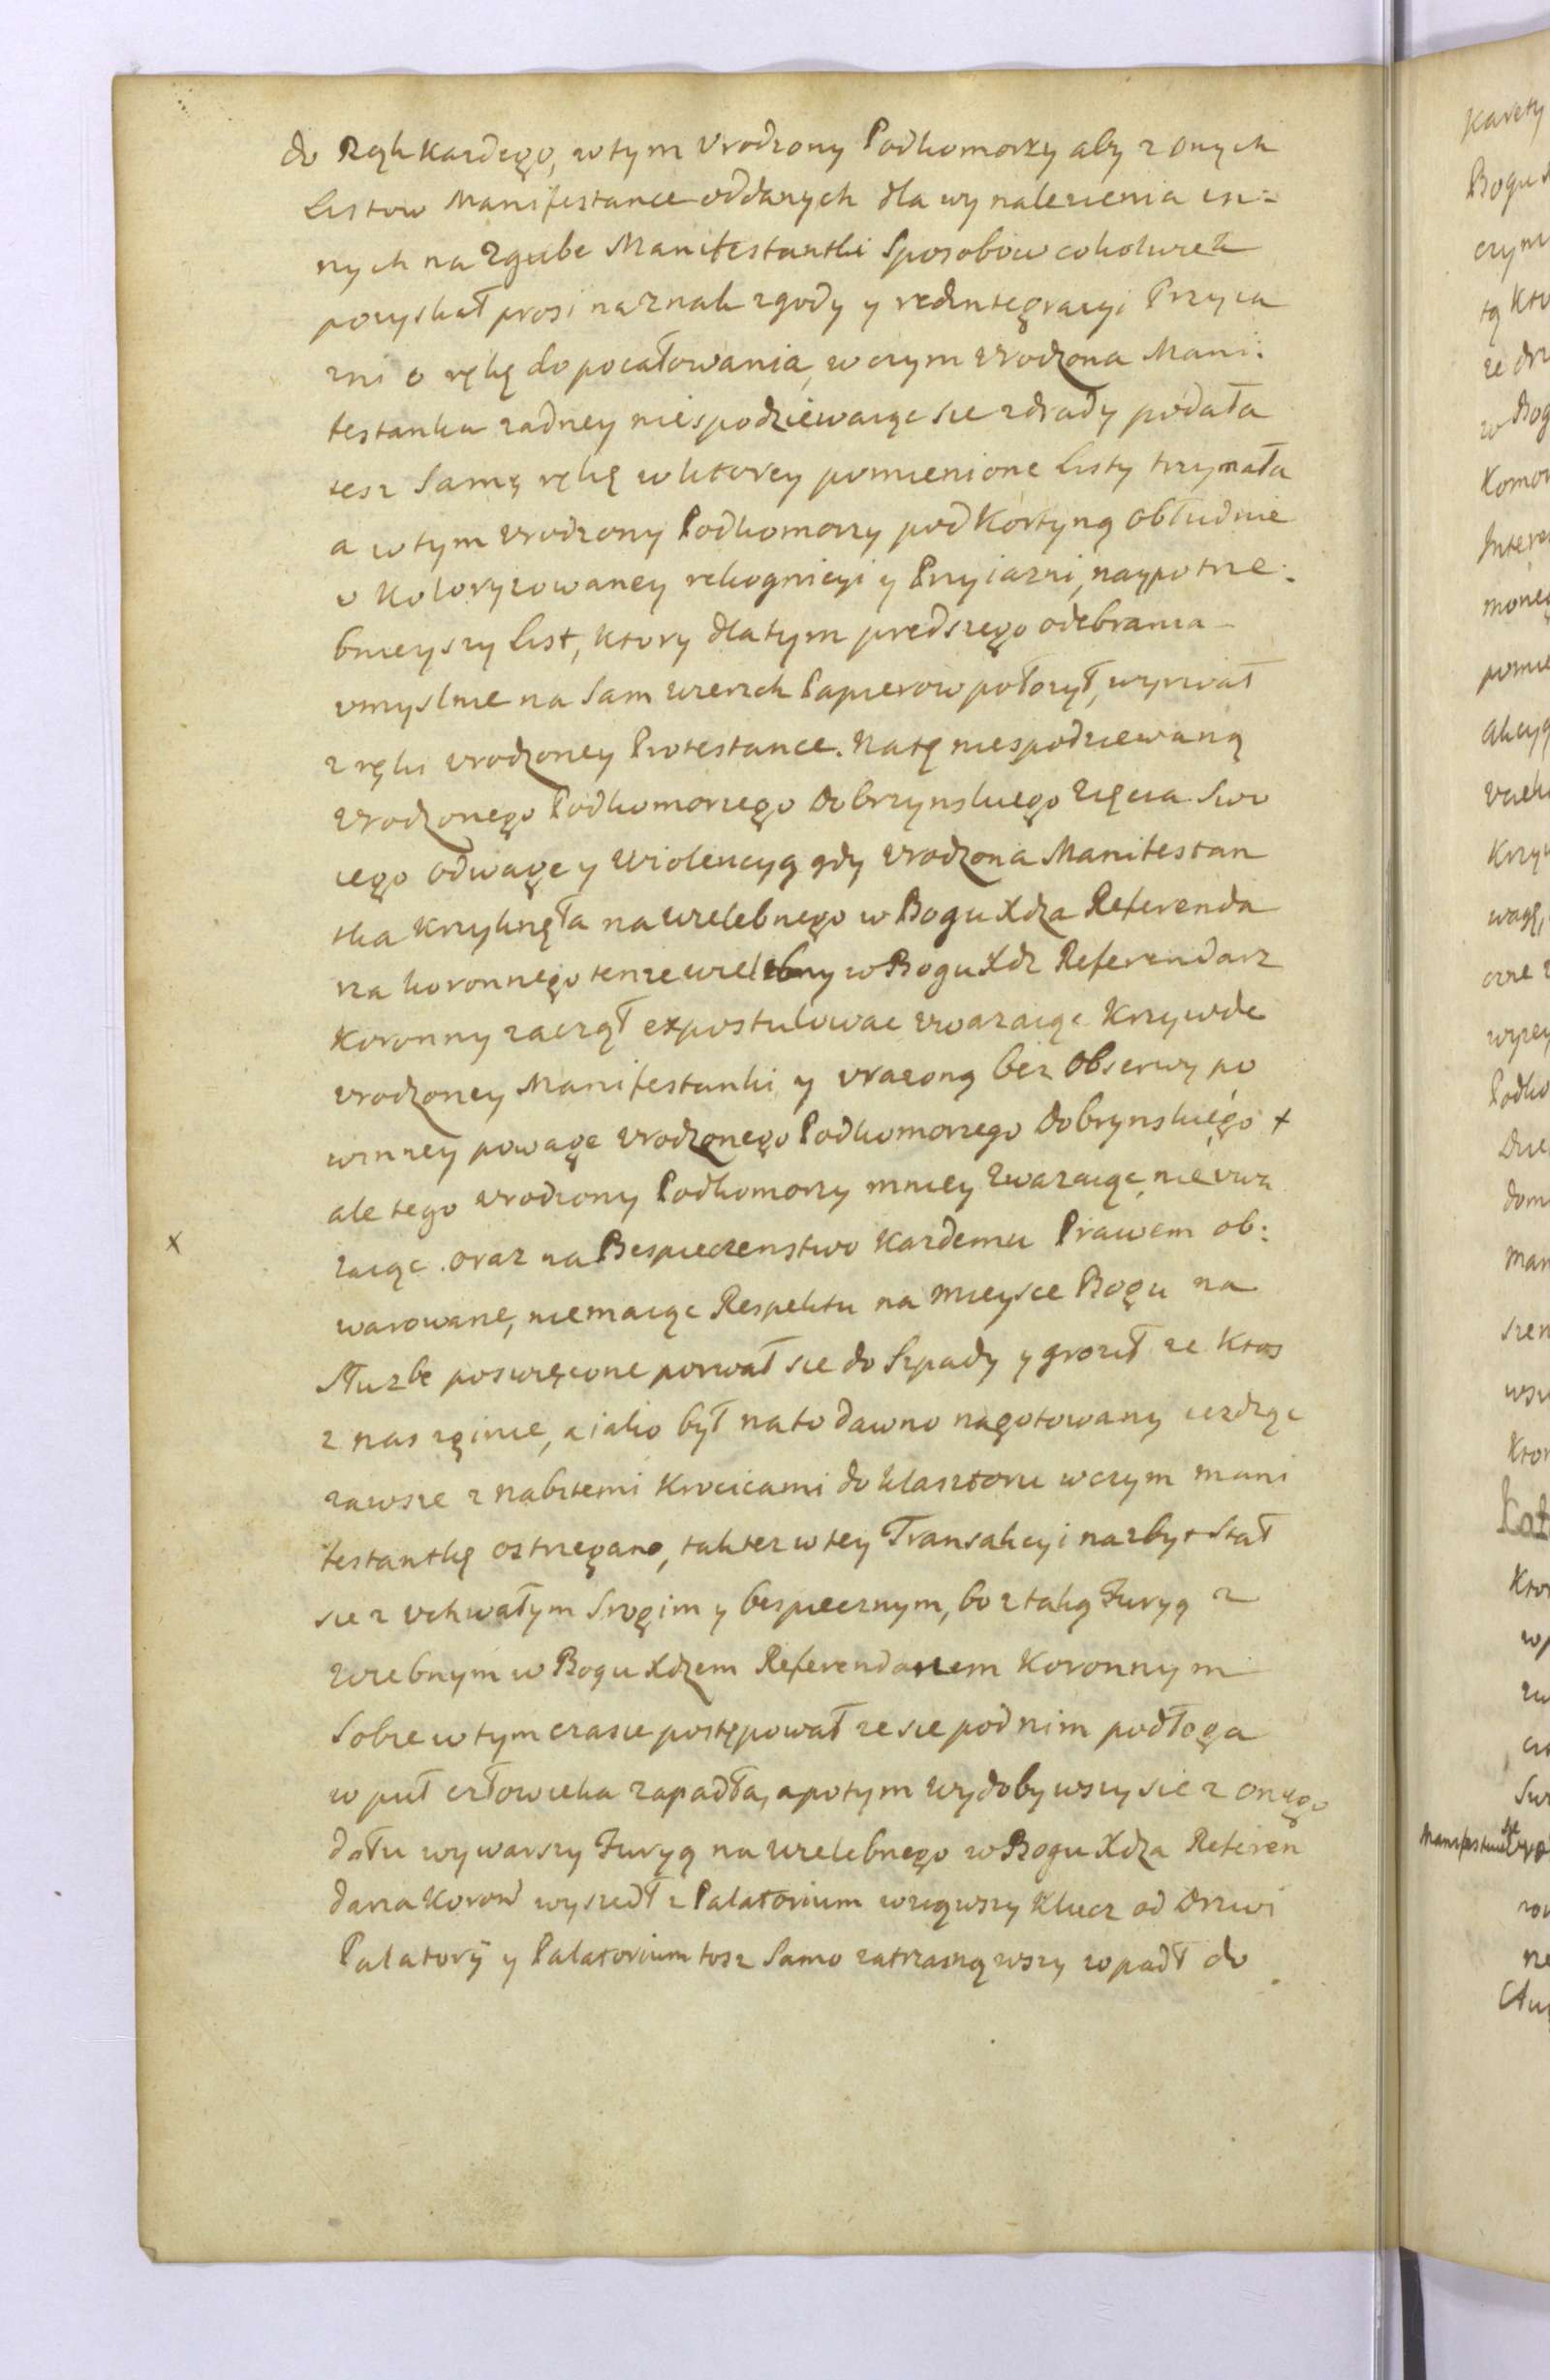 do Rąk Kazdego, wtym Vrodzony Podkomorzy aby z Onych
Listow Manifestance oddanych dla wynalezienia in=
nych na Zgube Manifestantki Sposobow cokolwiek
pozyskał prosi na znak zgody y redintegracyi Przyia
zni o rękę do pocałowania, wczym Vrodzona Mani:
festanka zadney niespodziewaiąc sie zdrady podała
tesz Samę rękę wktorey pomienione Listy trzymała
a wtym Vrodzony Podkomorzy pod Kortyną Obłudnie
v Koloryzowaney rekognicyi y Przyiazni, naypotrze:
bnieyszy List, ktory dla tym prędszego odebrania
vmyslnie na Sam Wierzch Papierow połozył, wyrwał
z ręki Vrodzoney Protestance. Natę niespodziewaną
Vrodzonego Podkomorzego Dobrzynskiego Zięcia Swo
iego Odwagę y Wiolencyą gdy Vrodzona Manifestan
tka Krzyknęła na Wielebnego w Bogu Xdza Referenda
rza koronnego tenze Wielebny w Bogu Xdz Referendarz
Koronny zaczął expostulowac Vwazaiąc Krzywde
Vrodzoney Manifestanki y Vrazoną bez Obserwy po
winney powagę Vrodzonego Podkomorzego Dobrynskiego +
ale tego Vrodzony Podkomorzy mniey Zwazaiąc, nie vwa
x
zaiąc oraz na Bespieczenstwo Kazdemu Prawem ob:
warowane, niemaiąc Respektu na Mieysce Bogu na
Słuzbe poswięcone porwał sie do Szpady y groził ze Ktos
z nas zginie, a iako był nato dawno nagotowany iezdząc
zawsze z nabitemi Krocicami do Klasztoru wczym mani
festantkę ostrzegano, taktez wtey Transakcyi nazbyt Stał
sie z Vchwałym Srogim y bespiecznym, bo z taką Furyą z
Wiebnym w Bogu Xdzem Referendarzem Koronnym
Sobie wtym czasie postępował ze sie pod nim podłoga
w puł człowieka zapadła, a potym Wydobywszy sie z onego
dołu wywarszy Furyą na Wielebnego w Bogu Xdza Referen
darza Koron wyszedł z Palatorium wziąwszy Klucz od Drzwi
Palatorij y Palatorium tosz Samo zatrzasnąwszy wpadł do